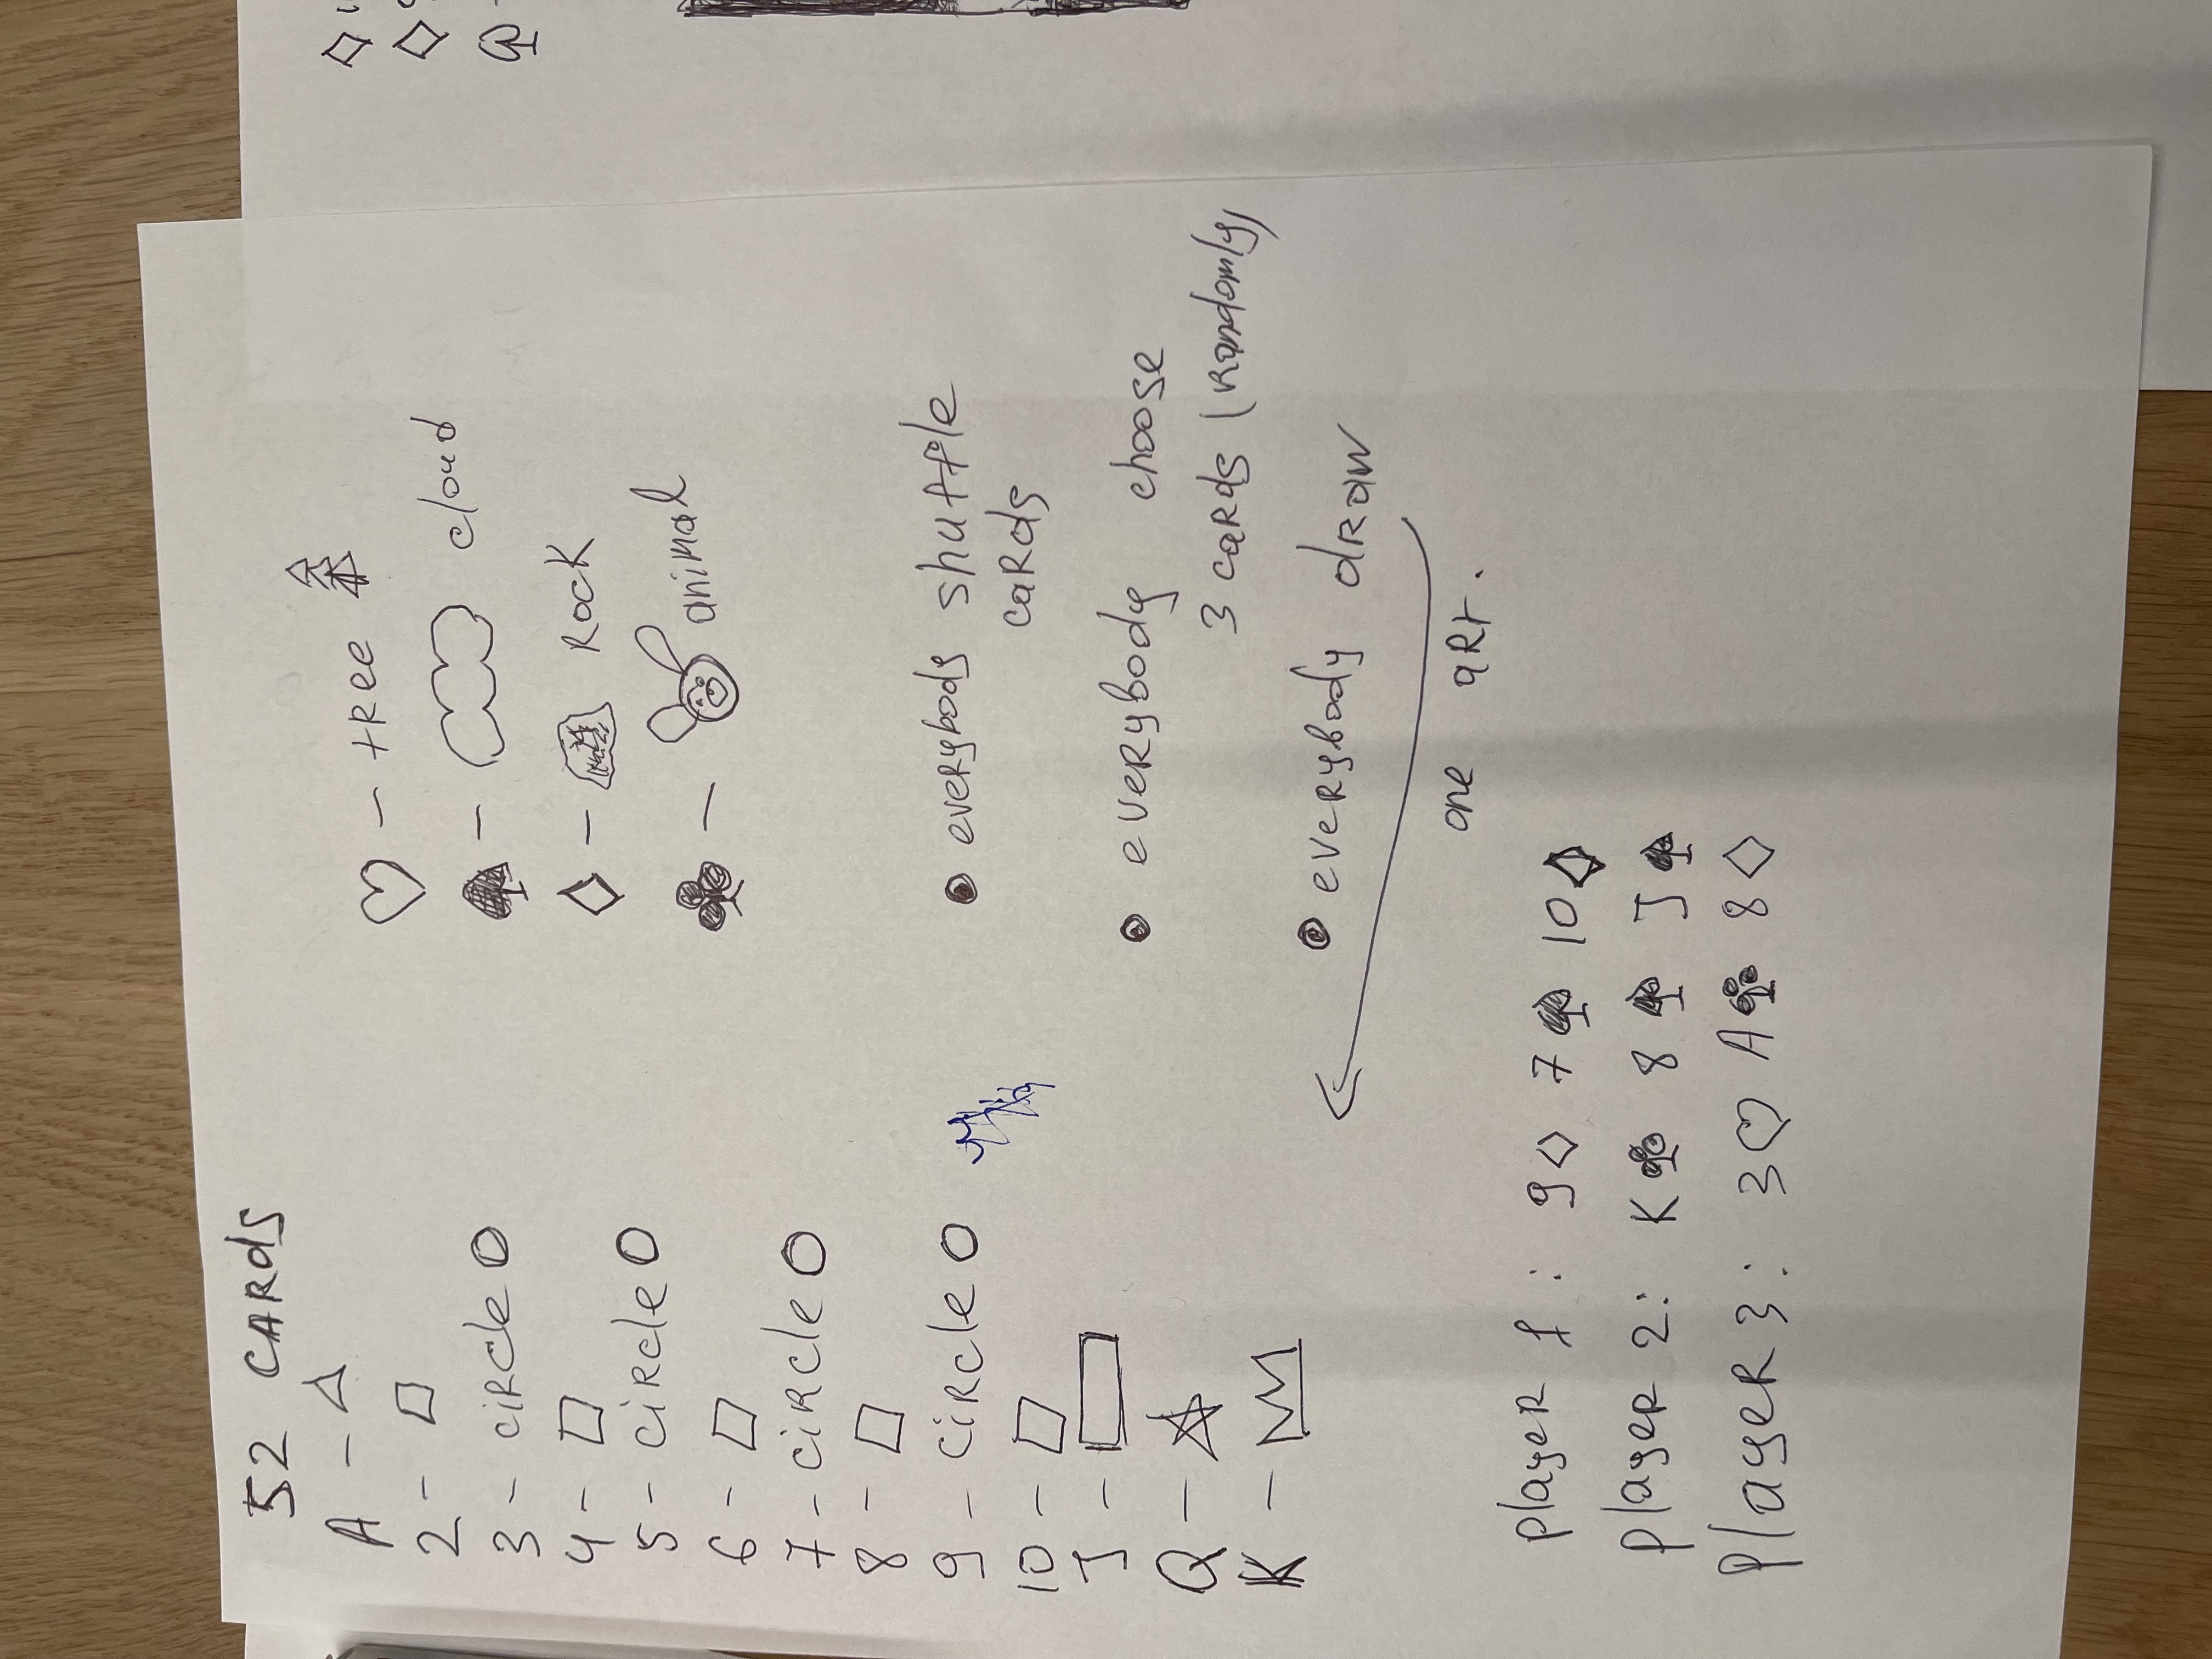 52 CARDS
A -
2 -
3 - circle
4 -
5 - circle
6 -
7 - circle
8 -
9 - circle
10 -
J -
Q -
K -
♡ - tree
♠ - cloud
♢ - Rock
♣ - animal
• everybody shuffle
cards
• everybody choose
3 cards (randomly)
• everybody draw
one art.
player 1: 9♢ 7♠ 10♢
player 2: K♣ 8♠ J♠
Player 3: 3♡ A♣ 8♢